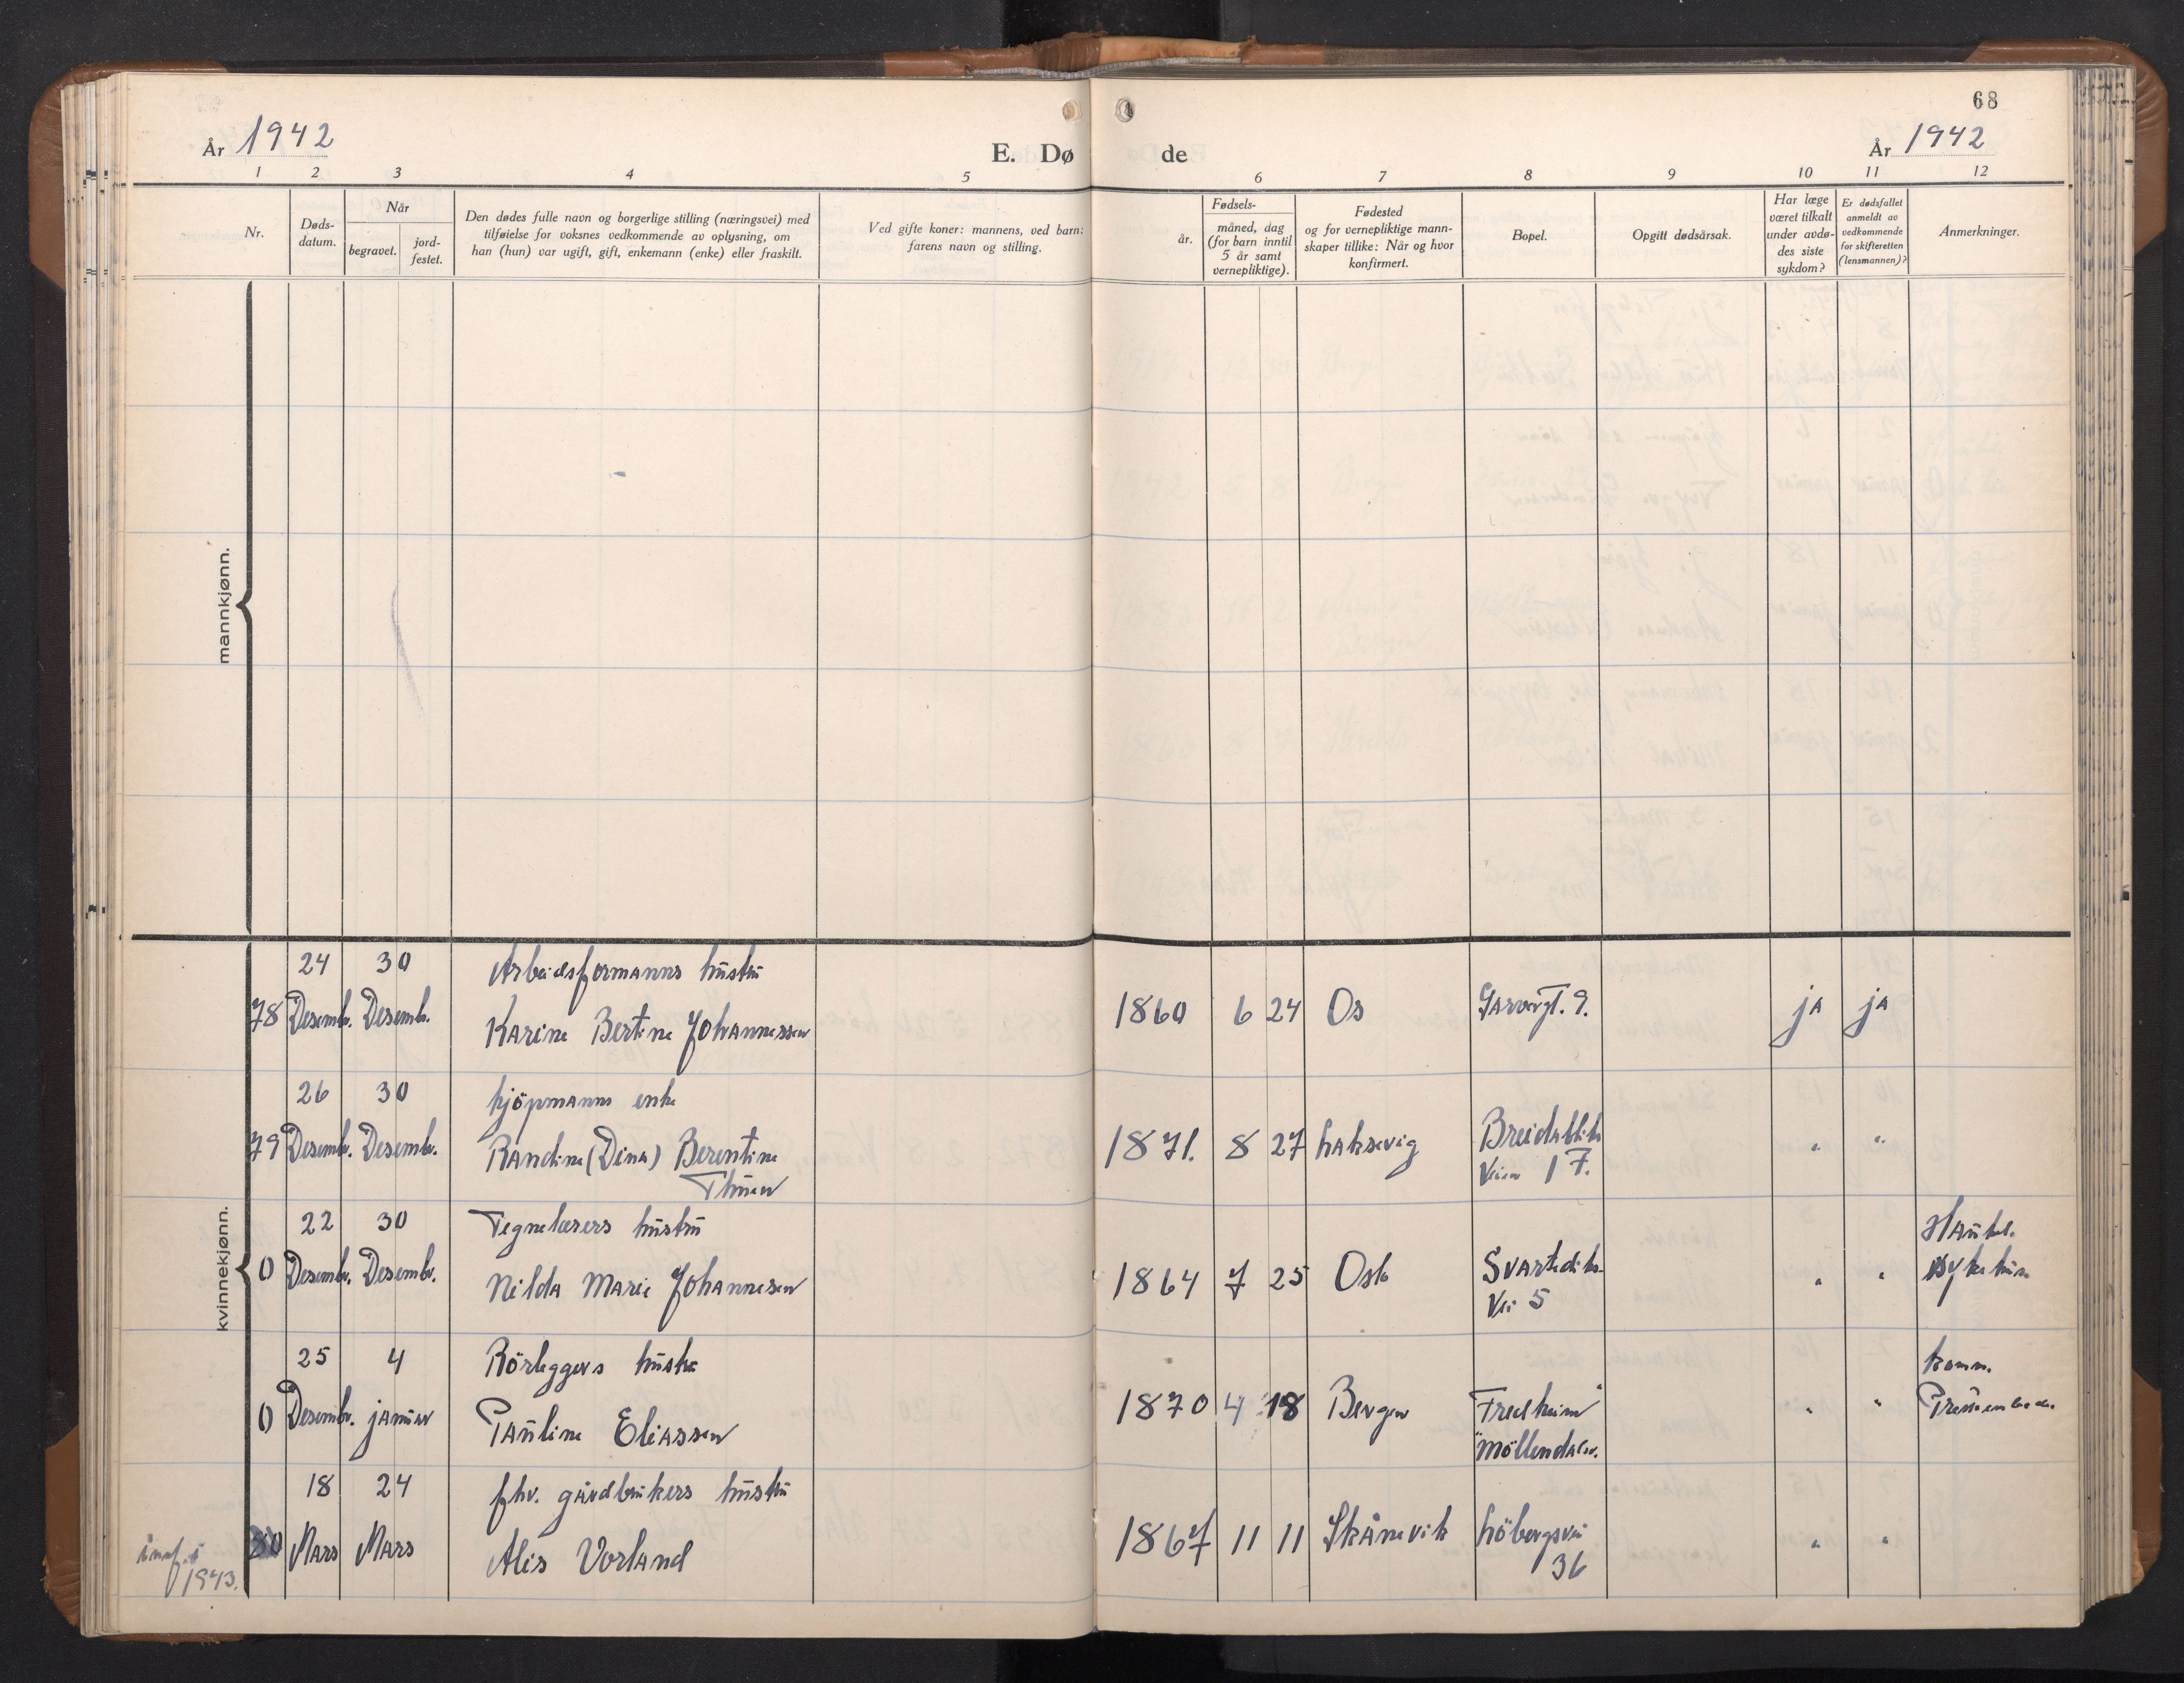 68
År 1942
E. Dø de
År 1942
1 2 3 4 5 6 7 8 9 10 11 12
Nr.
Døds-
datum.
Når
begravet.
jord-
festet.
Den dødes fulle navn og borgerlige stilling (næringsvei) med
tilføielse for voksnes vedkommende av oplysning, om
han (hun) var ugift, gift, enkemann (enke) eller fraskilt.
Ved gifte koner: mannens, ved barn:
farens navn og stilling.
Fødsels-
år.
måned, dag
(for barn inntil
5 år samt
vernepliktige).
Fødested
og for vernepliktige mann-
skaper tillike: Når og hvor
konfirmert.
Bopel.
Opgitt dødsårsak.
Har læge
været tilkalt
under avdø-
des siste
sykdom?
Er dødsfallet
anmeldt av
vedkommende
for skifteretten
(lensmannen)?
Anmerkninger.
mannkjønn.
kvinnekjønn.
24 30 Arbeidsformanns hustru
78 Desemb. Desemb. Karine Bertine Johannessen 1860 6 24 Os Garvergt. 9. ja ja
26 30 kjöpmanns enke
79 Desemb. Desemb. Randine (Dina) Berentine 1871. 8 27 Laksevig Breidabliks
Thuen Veien 17.
22 30 Tegnelærers hustru Haukel.
0 Desemb. Desemb. Nilda Marie Johannesen 1864 7 25 Oslo Svartediks- " " sykehus
Vei 5
25 4 Rörleggers hustru komm.
0 Desemb. januar Pauline Eliassen 1870 4 18 Bergen "Fredheim" " "
Möllendalsv.
18 24 fhv. gårdbrukers hustru
innf. i 80 Mars Mars Alis Vorland 1867 11 11 Skånevik Löbergsvei " "
1943. 36